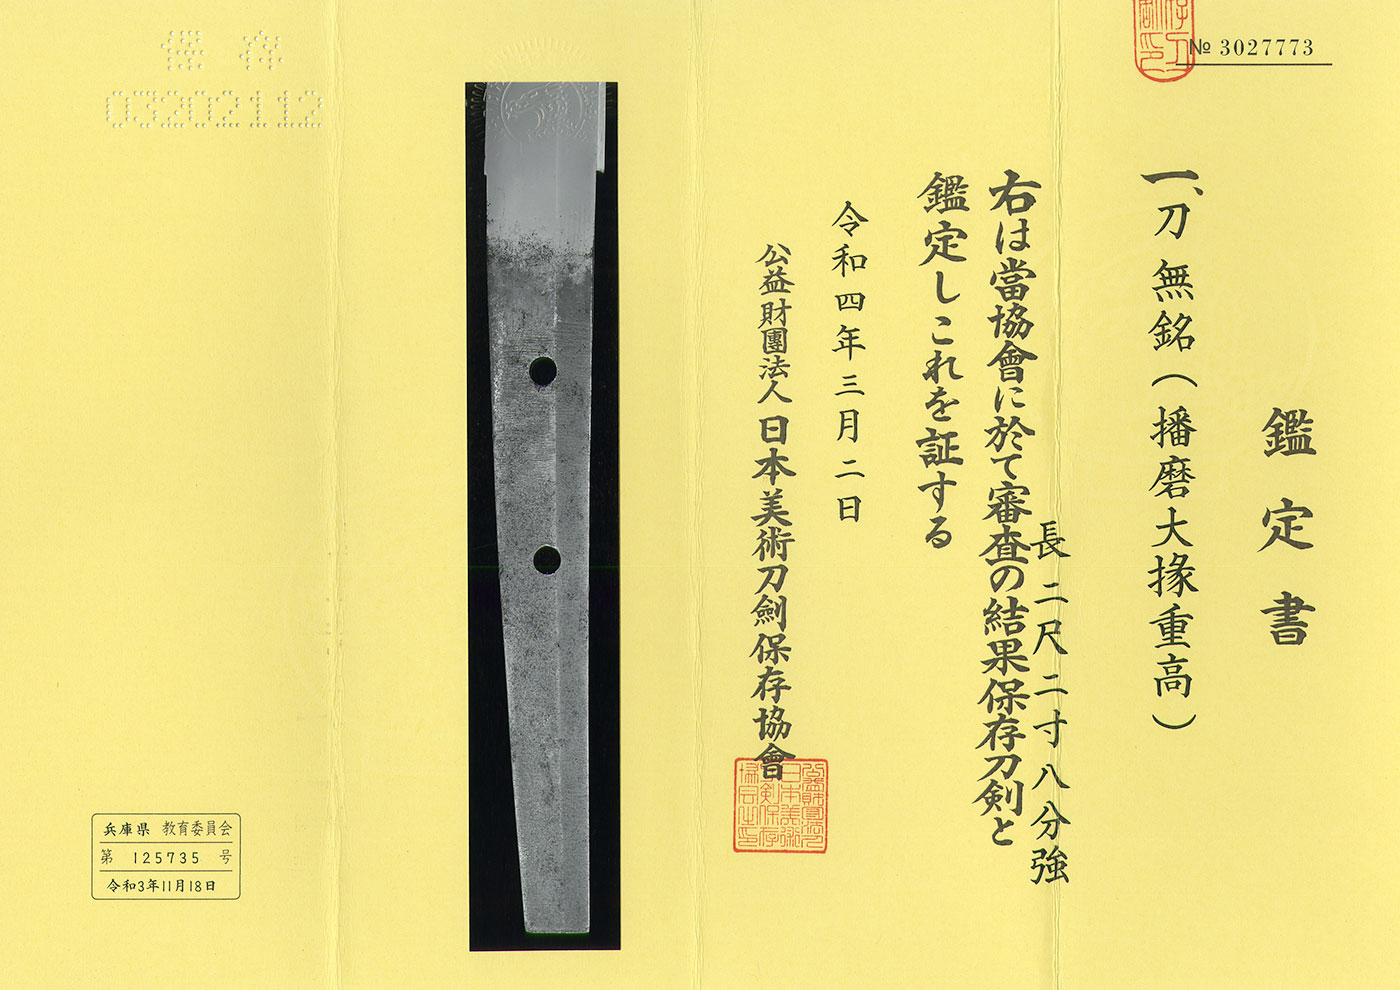 № 3027773
鑑定書
一、刀 無銘(播磨大掾重高)
長 二尺二寸八分強
右は當協會に於て審査の結果保存刀剣と
鑑定しこれを証する
令和四年三月二日
公益財團法人 日本美術刀劍保存協會
保存
03202112
兵庫県 教育委員会
第 125735 号
令和3年11月18日